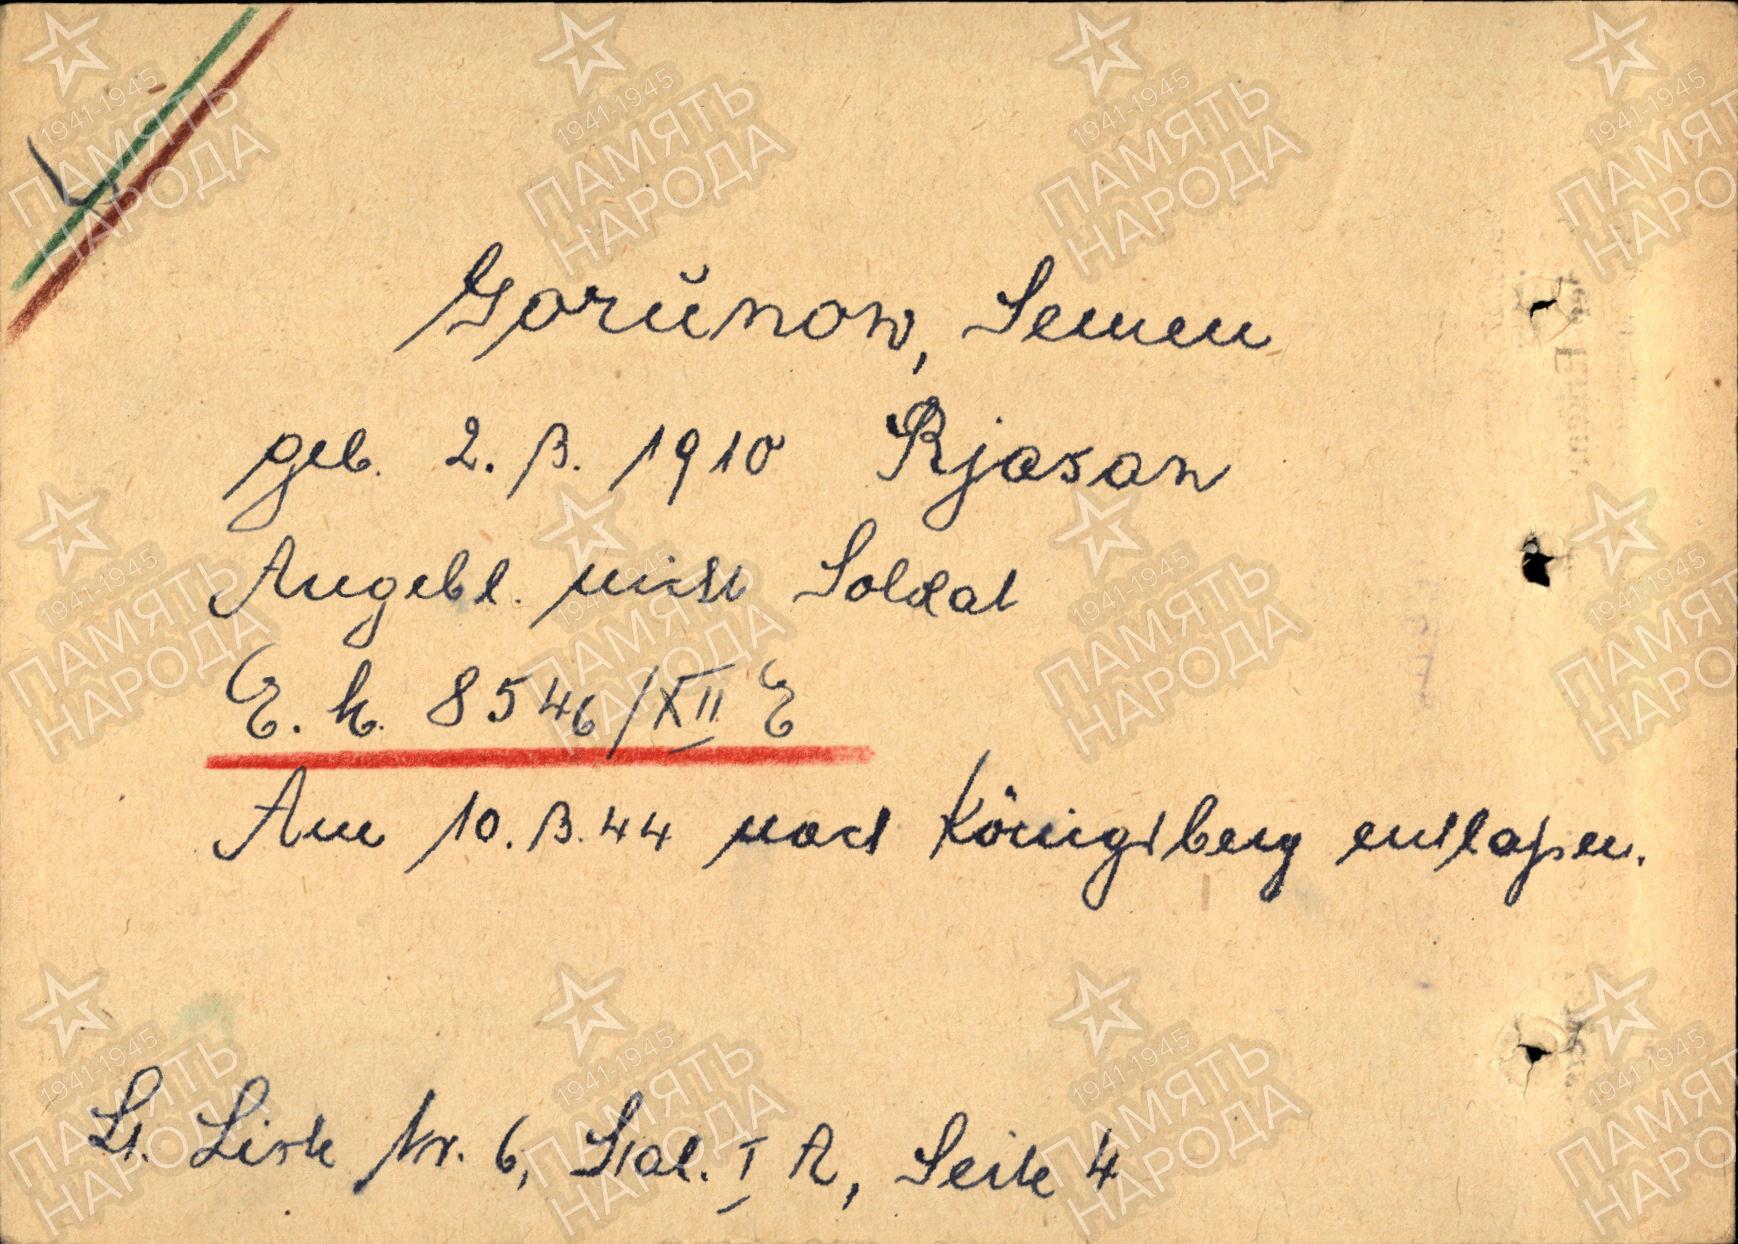 Gorŭnow, Semen
geb. 2.3.1910 Rjasan
Angebl. nicht Soldat
E. k. 8546/XII E
Am 10.3.44 nach Königsberg entlaßen.
Lt. Liste Nr. 6, Stal. I A, Seite 4
1941-1945
ПАМЯТЬ
НАРОДА